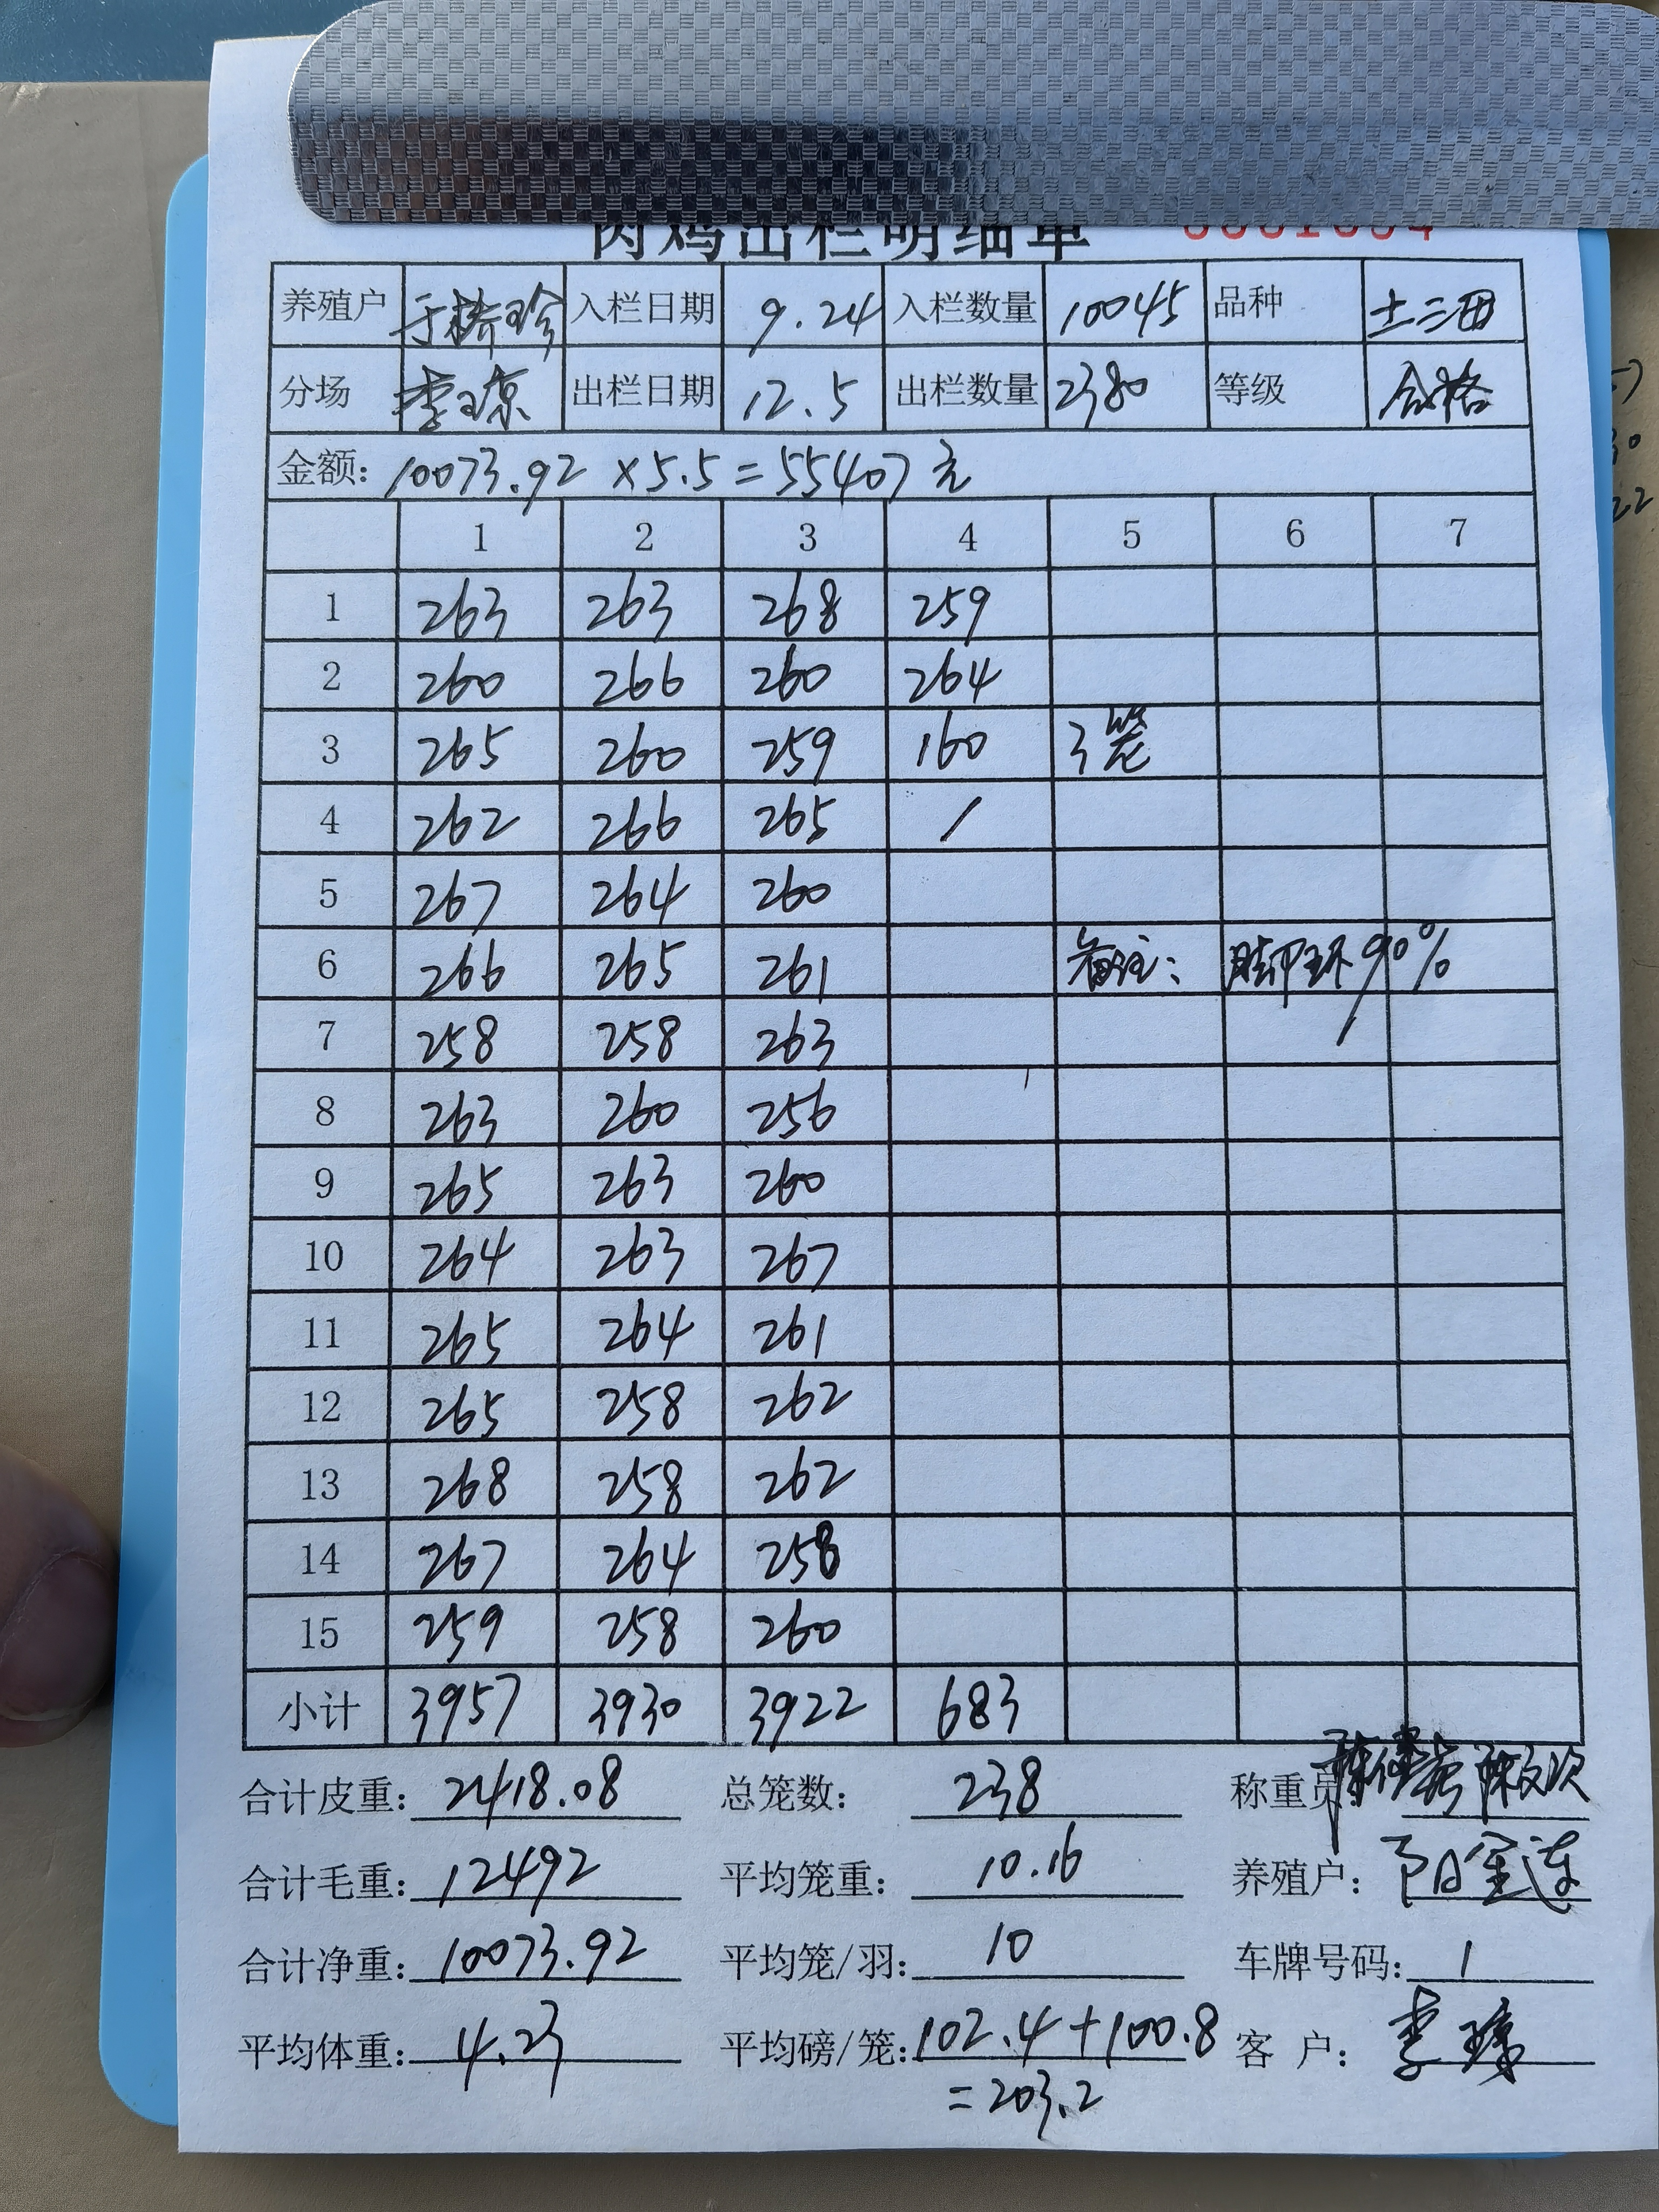 肉鸡出栏明细单
养殖户 于桥珍 入栏日期 9.24 入栏数量 10045 品种 土二西
分场 李琼 出栏日期 12.5 出栏数量 2380 等级 合格
金额: 10073.92 ×5.5=55407元
1 2 3 4 5 6 7
1 263 263 268 259
2 260 266 260 264
3 265 260 259 160 3笼
4 262 266 265 /
5 267 264 260
6 266 265 261 备注: 脚环90%
7 258 258 263
8 263 260 256
9 265 263 260
10 264 263 267
11 265 264 261
12 265 258 262
13 268 258 262
14 267 264 258
15 259 258 260
小计 3957 3930 3922 683
合计皮重: 2418.08 总笼数: 238 称重员:
合计毛重: 12492 平均笼重: 10.16 养殖户: 阳金莲
合计净重: 10073.92 平均笼/羽: 10 车牌号码: 1
平均体重: 4.23 平均磅/笼: 102.4+100.8 客 户: 李琼
=203.2